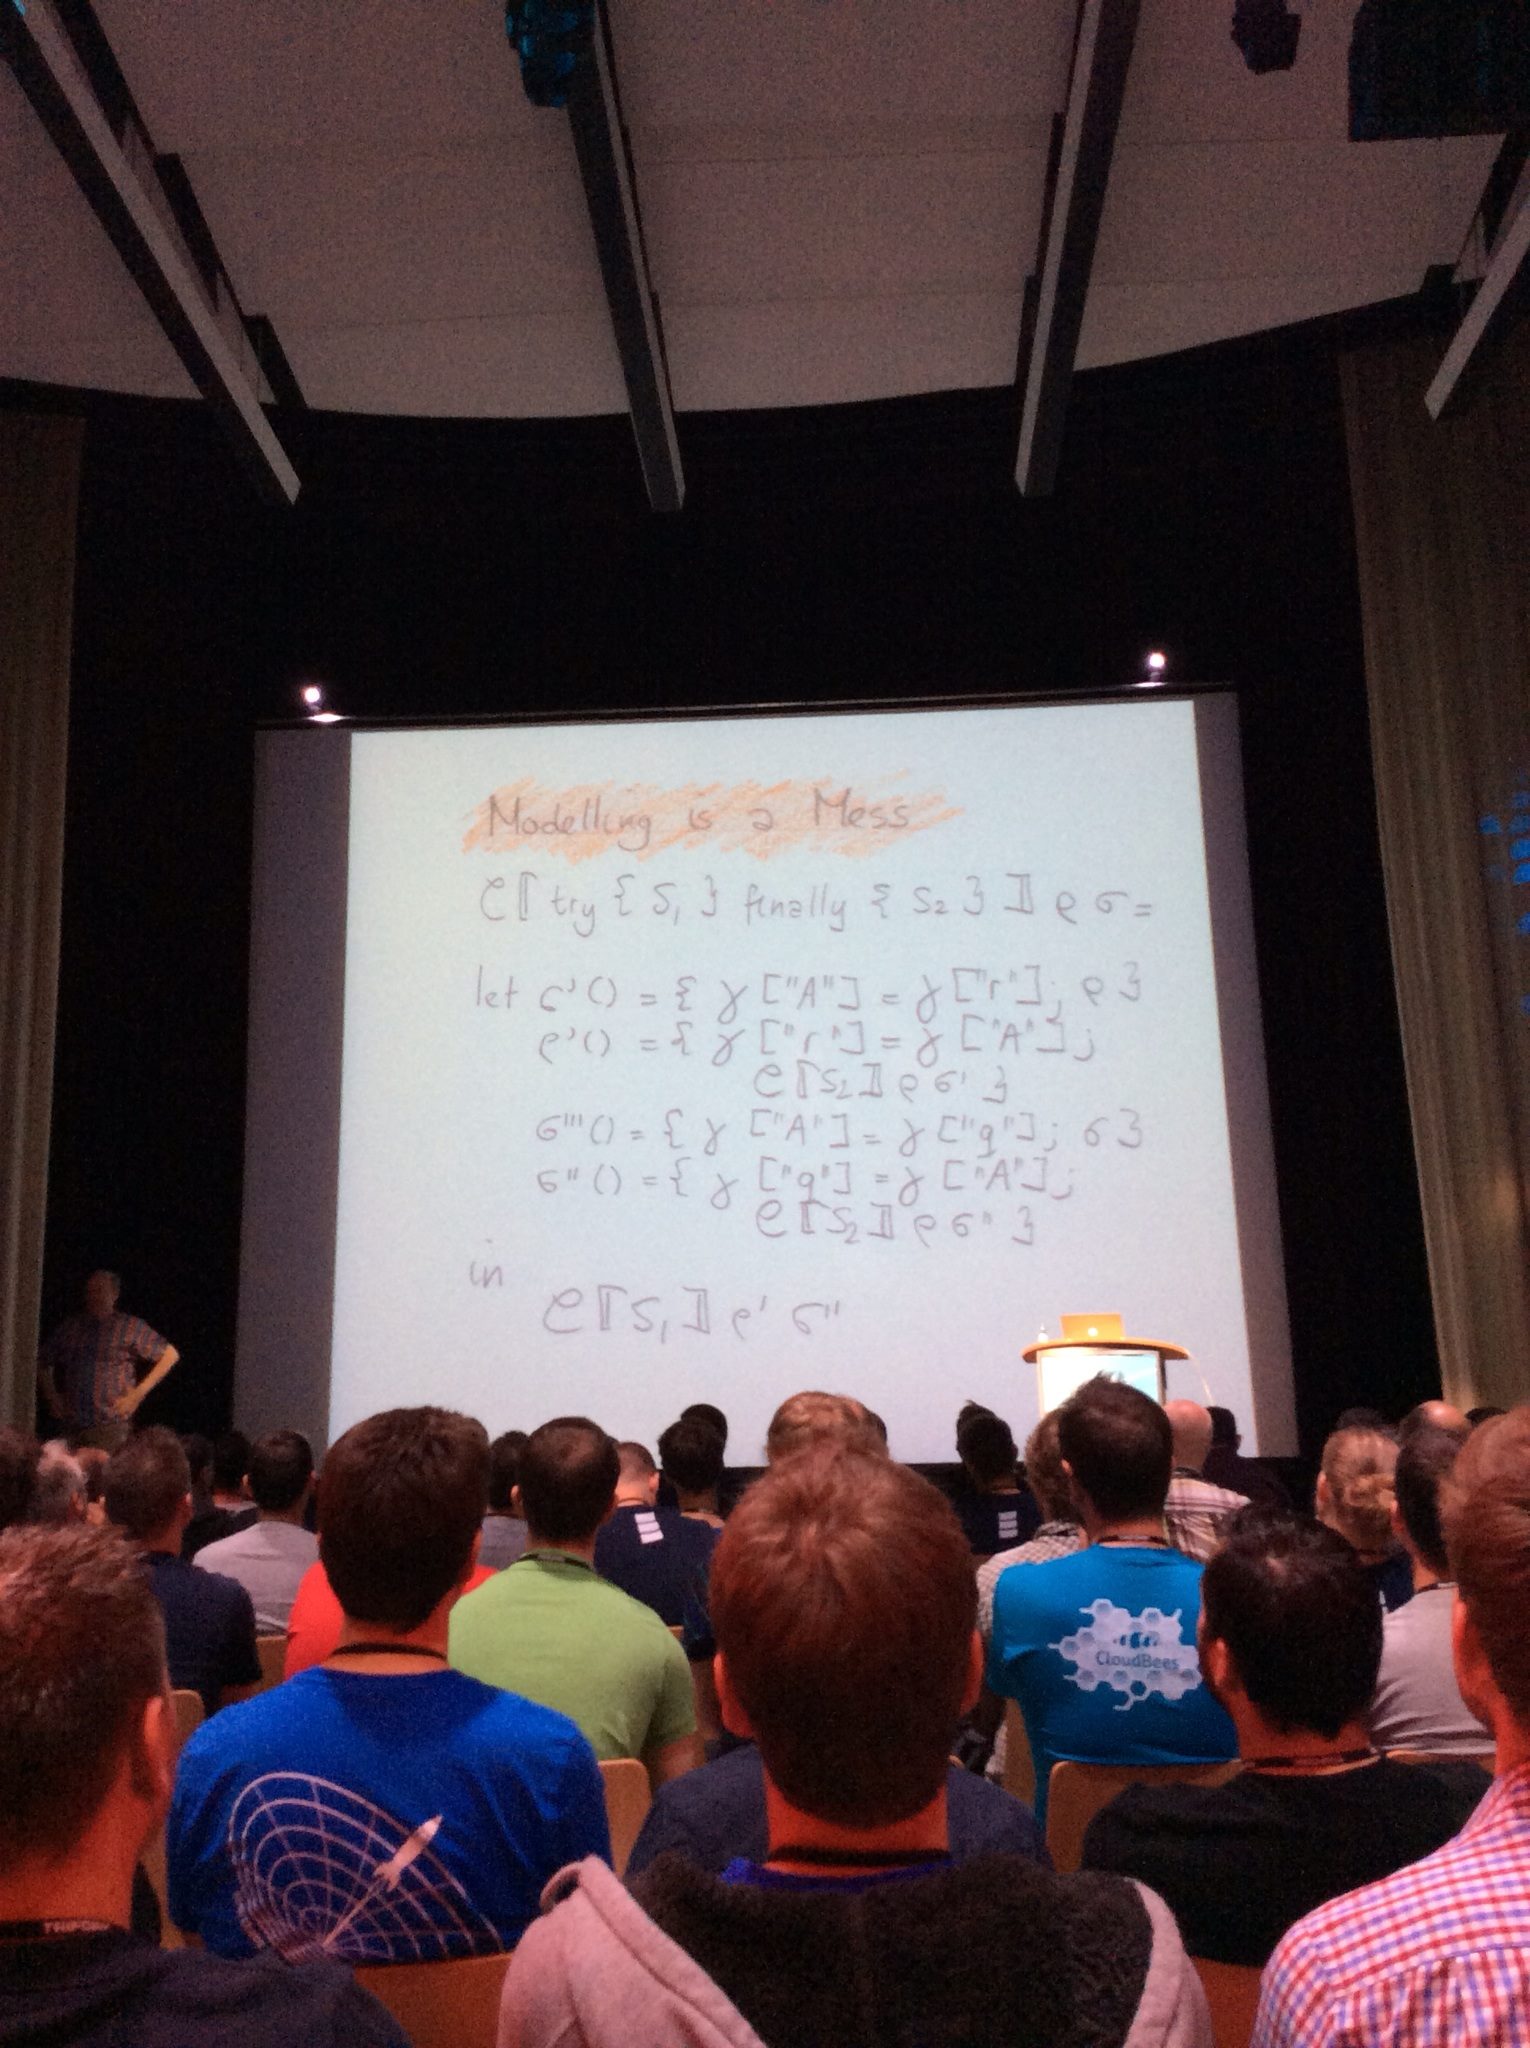 Modelling is a Mess
C⟦ try { S₁ } finally { S₂ } ⟧ ρ σ =
let σ'() = { γ ["A"] = γ ["r"]; ρ }
ρ'() = { γ ["r"] = γ ["A"];
C⟦S₂⟧ ρ σ' }
σ'''() = { γ ["A"] = γ ["q"]; σ }
σ''() = { γ ["q"] = γ ["A"];
C⟦S₂⟧ ρ σ'' }
in
C⟦S₁⟧ ρ' σ''
CloudBees